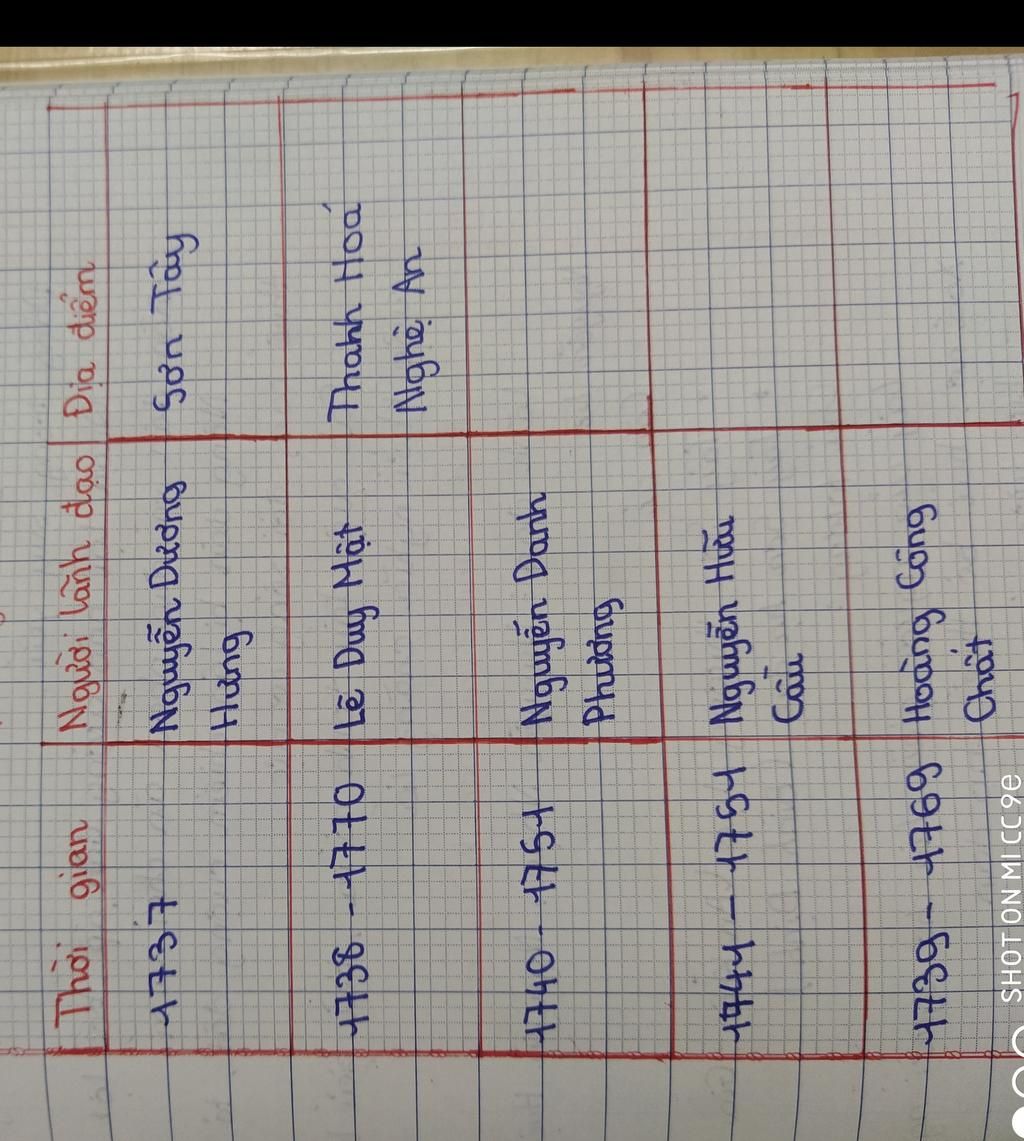 Thời gian Người lãnh đạo Địa điểm
1737 Nguyễn Dương Sơn Tây
Hưng
1738 - 1770 Lê Duy Mật Thanh Hoá
Nghệ An
1740 - 1751 Nguyễn Danh
Phương
1741 - 1751 Nguyễn Hữu
Cầu
1739 - 1769 Hoàng Công
Chất
SHOT ON MI CC 9e